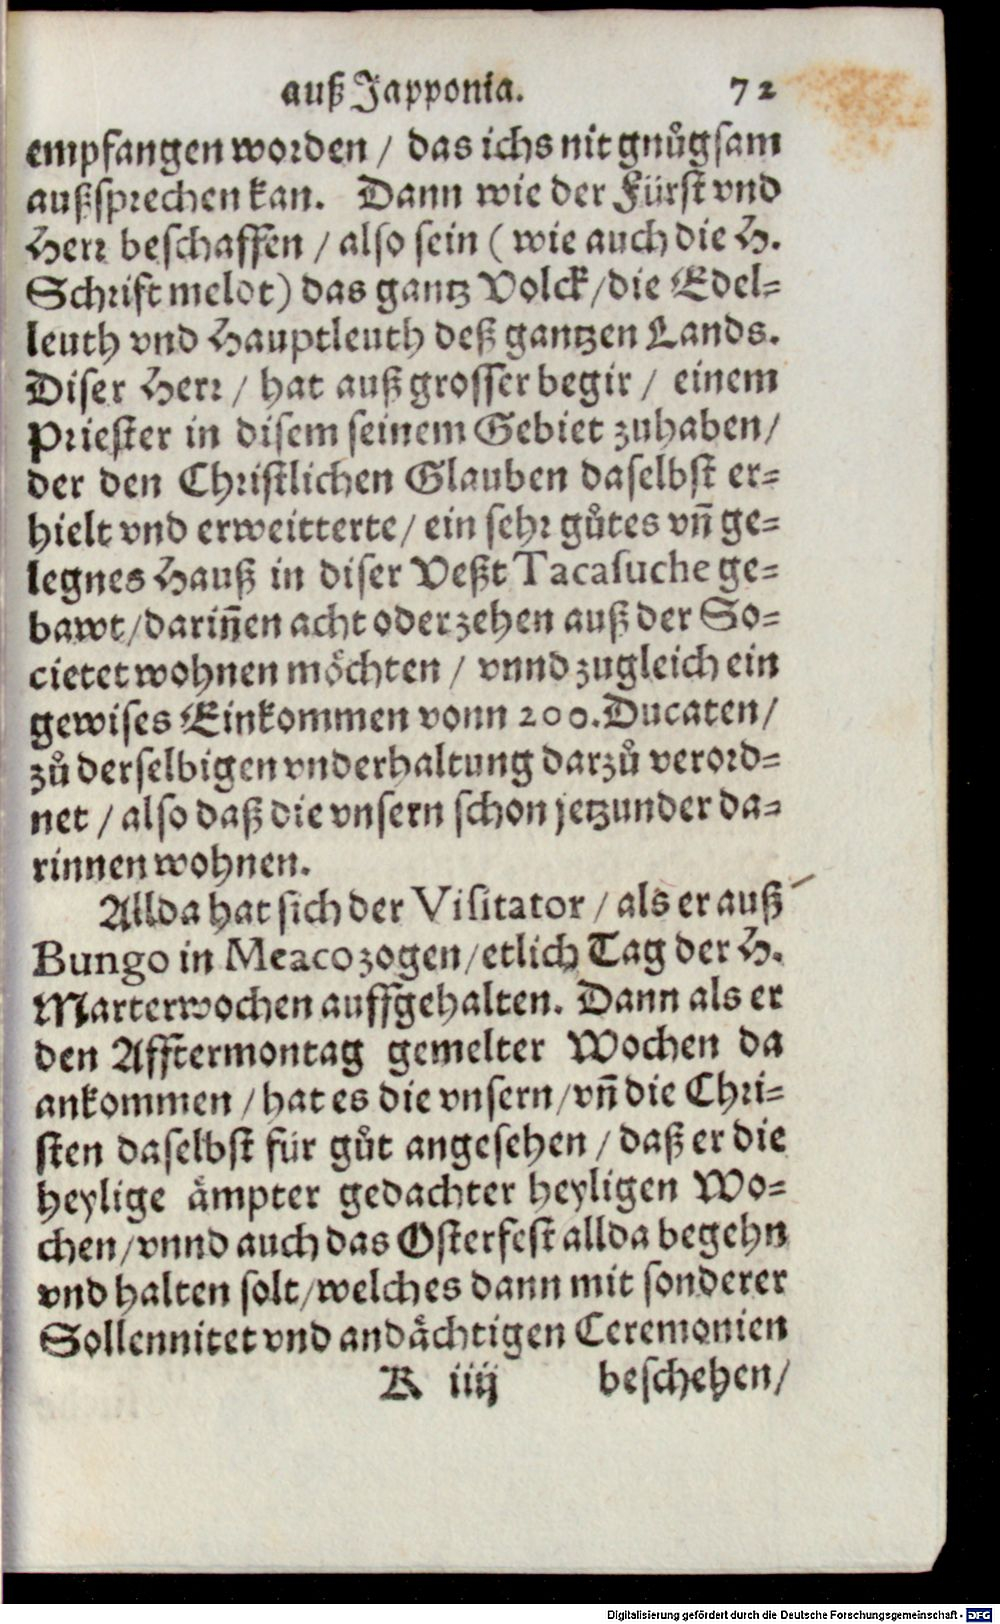 auß Japponia. 72
empfangen worden / das ichs nit gnůgsam
außsprechen kan. Dann wie der Fürst vnd
Herr beschaffen / also sein ( wie auch die H.
Schrift melot) das gantz Volck/die Edel=
leuth vnd Hauptleuth deß gantzen Lands.
Diser Herr / hat auß grosser begir / einem
Priester in disem seinem Gebiet zuhaben/
der den Christlichen Glauben daselbst er=
hielt vnd erweitterte/ ein sehr gůtes vñ ge=
legnes Hauß in diser Veßt Tacasuche ge=
bawt/dariñen acht oder zehen auß der So=
cietet wohnen möchten / vnnd zugleich ein
gewises Einkommen vonn 200. Ducaten/
zů derselbigen vnderhaltung darzů verord=
net / also daß die vnsern schon jetzunder da=
rinnen wohnen.
Allda hat sich der Visitator / als er auß
Bungo in Meaco zogen/etlich Tag der H.
Marterwochen auffgehalten. Dann als er
den Afftermontag gemelter Wochen da
ankommen / hat es die vnsern/vñ die Chri=
sten daselbst für gůt angesehen / daß er die
heylige ämpter gedachter heyligen Wo=
chen/vnnd auch das Osterfest allda begehn
vnd halten solt/welches dann mit sonderer
Sollennitet vnd andächtigen Ceremonien
K iiij beschehen/
Digitalisierung gefördert durch die Deutsche Forschungsgemeinschaft - DFG